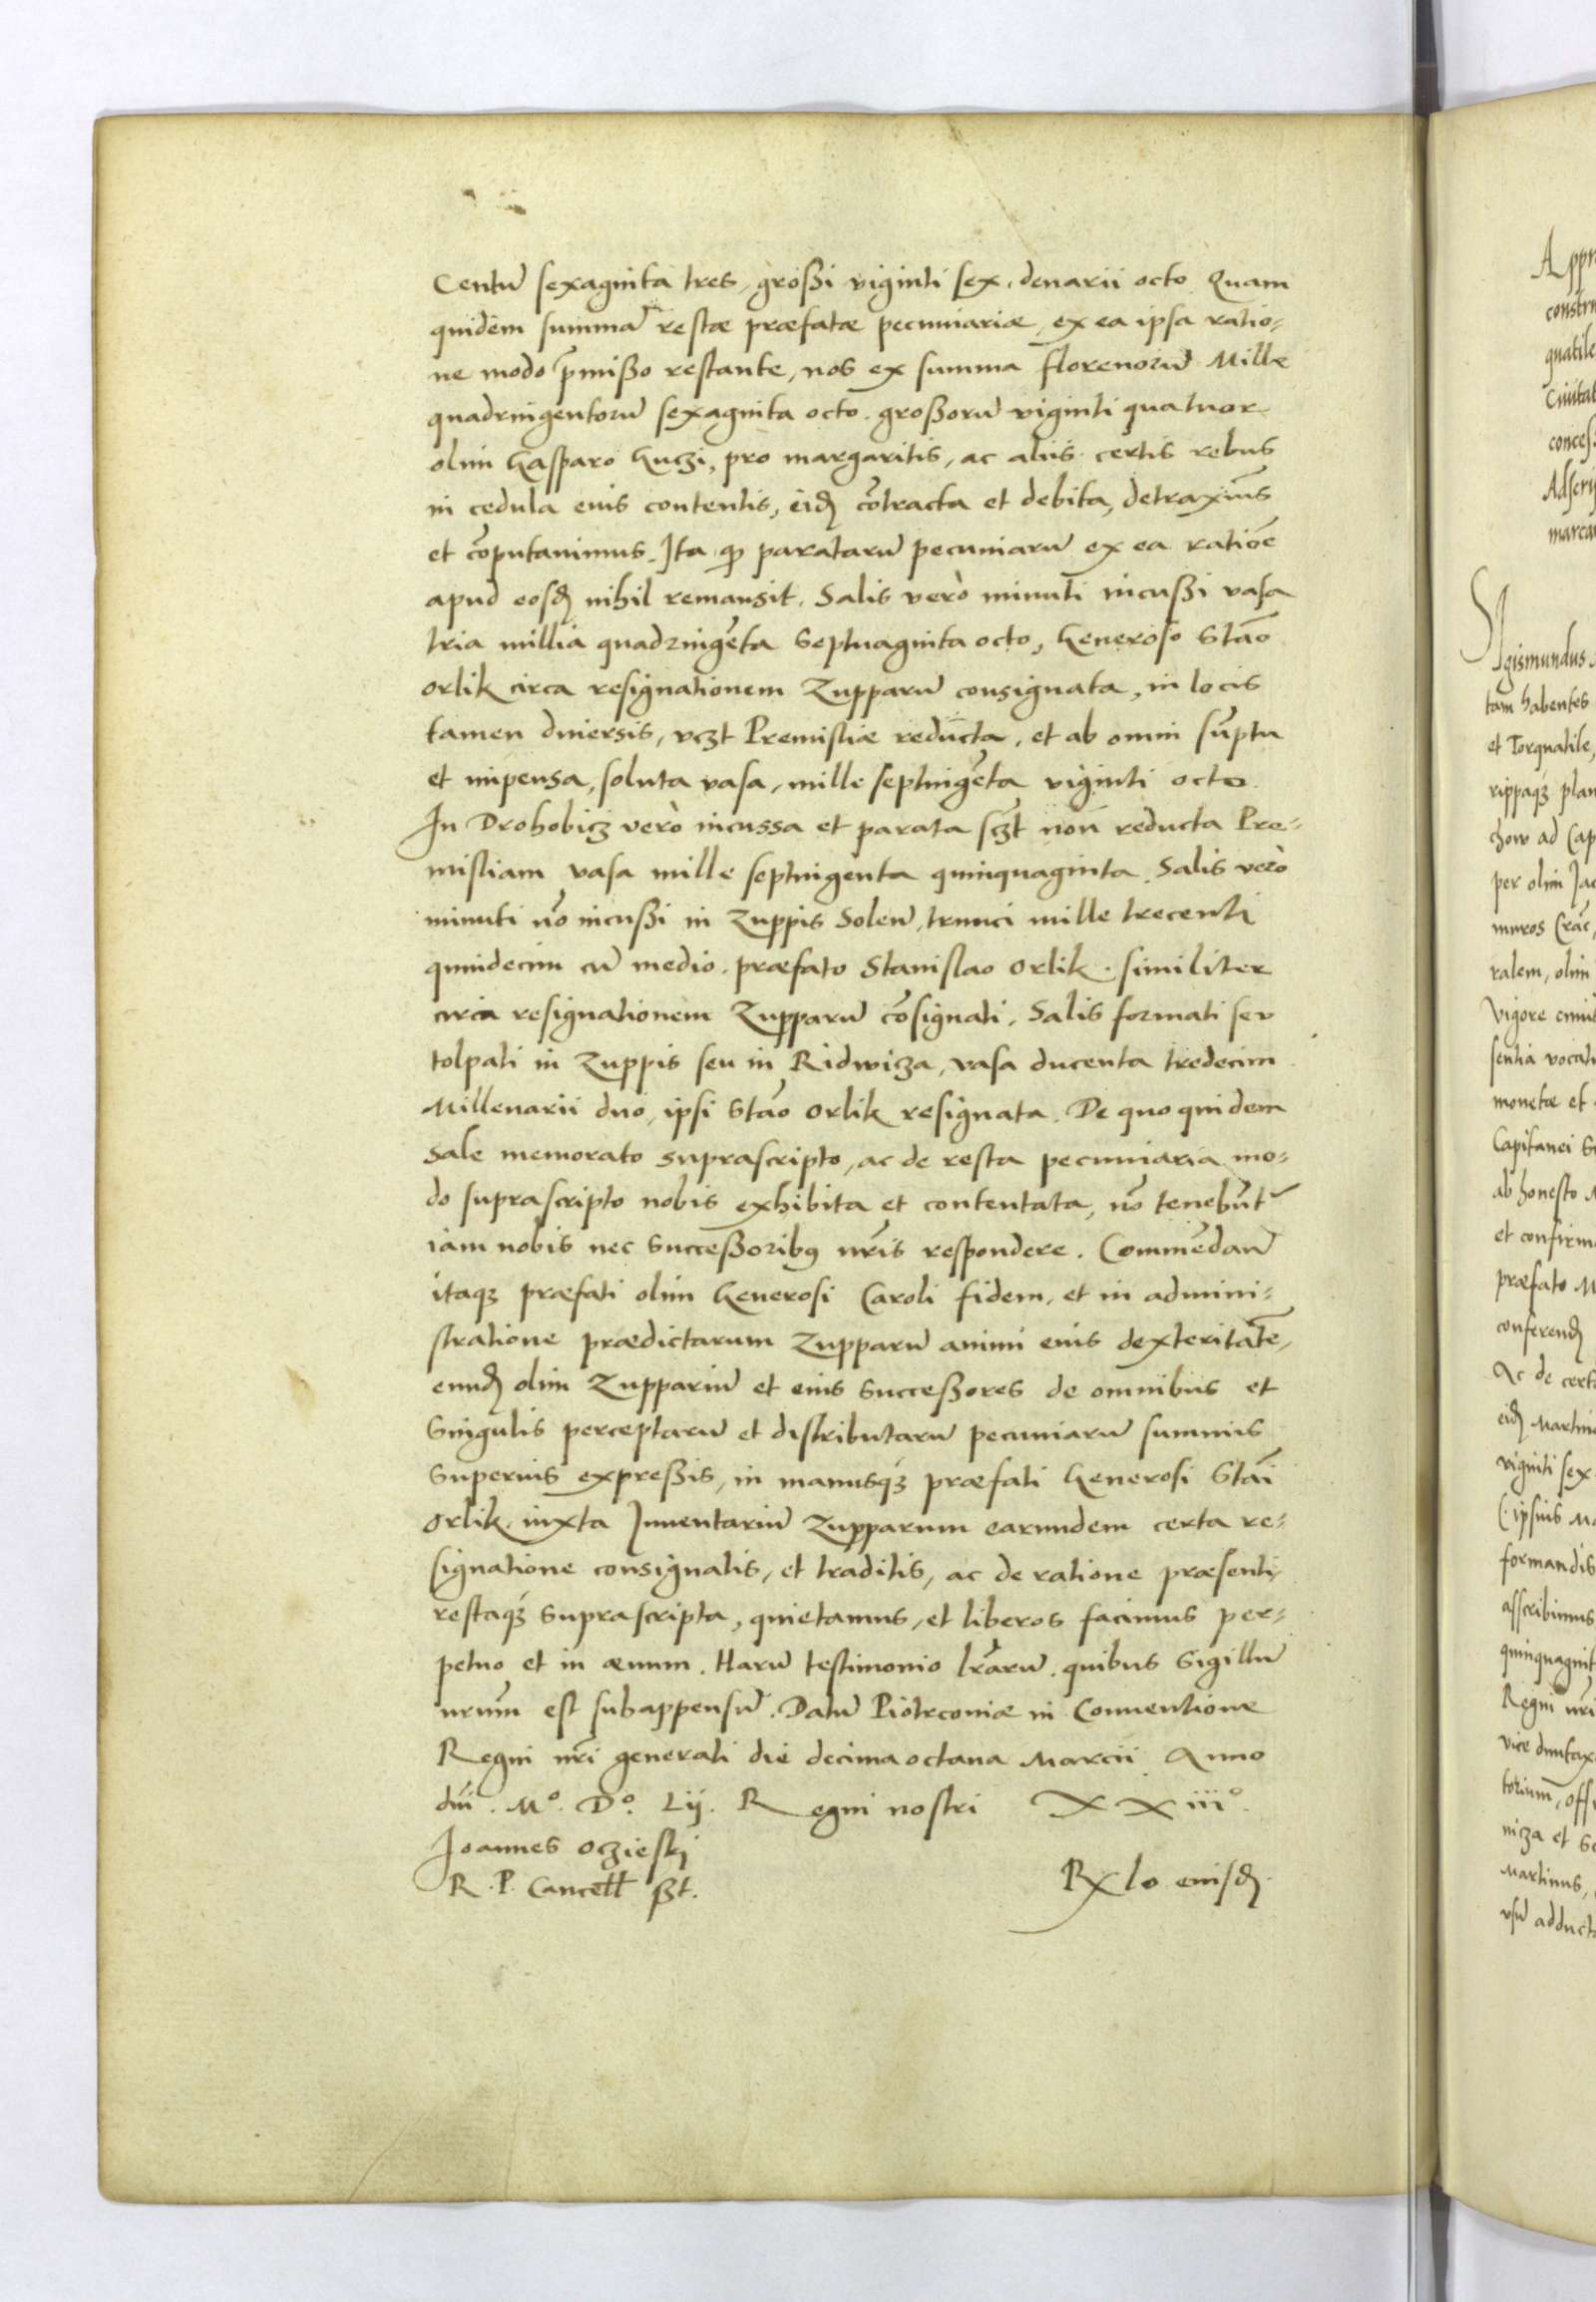 Centũ sexaginta tres, großi viginti sex, denarii octo Quam
quidem summã restæ præfatæ pecuniariæ, ex ea ipsa ratio-
ne modo p̃mißo restante, nos ex summa florenorũ Mille
quadringentorũ sexaginta octo. großorũ viginti quatuor
olim Gasparo Guczi, pro margaritis, ac aliis certis rebus
in cedula eius contentis, eiđ cõtracta et debita, detraxim̃s
et cõputauimus. Ita ꝙ paratarũ pecuniarũ ex ea ratiõe
apud eosđ nihil remansit. Salis verò minuti incußi vasa
tria millia quadringẽta Septuaginta octo, Generoso Stão
Orlik circa resignationem Zupparũ consignata, in locis
tamen diuersis, vczt Premisliæ reducta, et ab omni sũptu
et impensa, soluta vasa, mille septingẽta viginti octo.
In Drohobicz verò incussa et parata sczt non reducta Pre-
misliam vasa mille septingenta quinquaginta. Salis verò
minuti nõ incußi in Zuppis Solen̄, trunci mille trecenti
quindecim cũ medio. præfato Stanislao Orlik. similiter
circa resignationem Zupparũ cõsignati. Salis formati seu
tolpati in Zuppis seu in Ridwicza, vasa ducenta tredecim
Millenarii duo, ipsi Stão Orlik resignata. De quo quidem
Sale memorato suprascripto, ac de resta pecuniaria mo-
do suprascripto nobis exhibita et contentata, nõ tenebũt
iam nobis nec Succeßoribꝰ nr̃is respondere. Commẽdan̄
itaqꝫ præfati olim Generosi Caroli fidem, et in admini-
stratione prædictarum Zupparũ animi eius dexteritãte,
eunđ olim Zuppariũ et eius Succeßores de omnibus et
Singulis perceptarũ et distributarũ pecuniarũ summis
Superius expreßis, in manusqꝫ præfati Generosi Stãi
Orlik. iuxta Inuentariũ Zupparum earundem certa re-
signatione consignatis, et traditis, ac de ratione præsenti,
restaqꝫ suprascripta, quietamus, et liberos facimus per-
petuo et in æuum. Harũ testimonio lr̃arũ. quibus Sigillũ
nrũm est subappensũ. Datũ Piotrcoviæ in Conuentione
Regni nr̃i generali die decima octaua Marcii Anno
dñi. Mº. Dº. Lij. Regni nostri XXiiiº.
Joannes Oczieskj
R. P. Cancell̃ ßt.
Rx lo eiusđ.